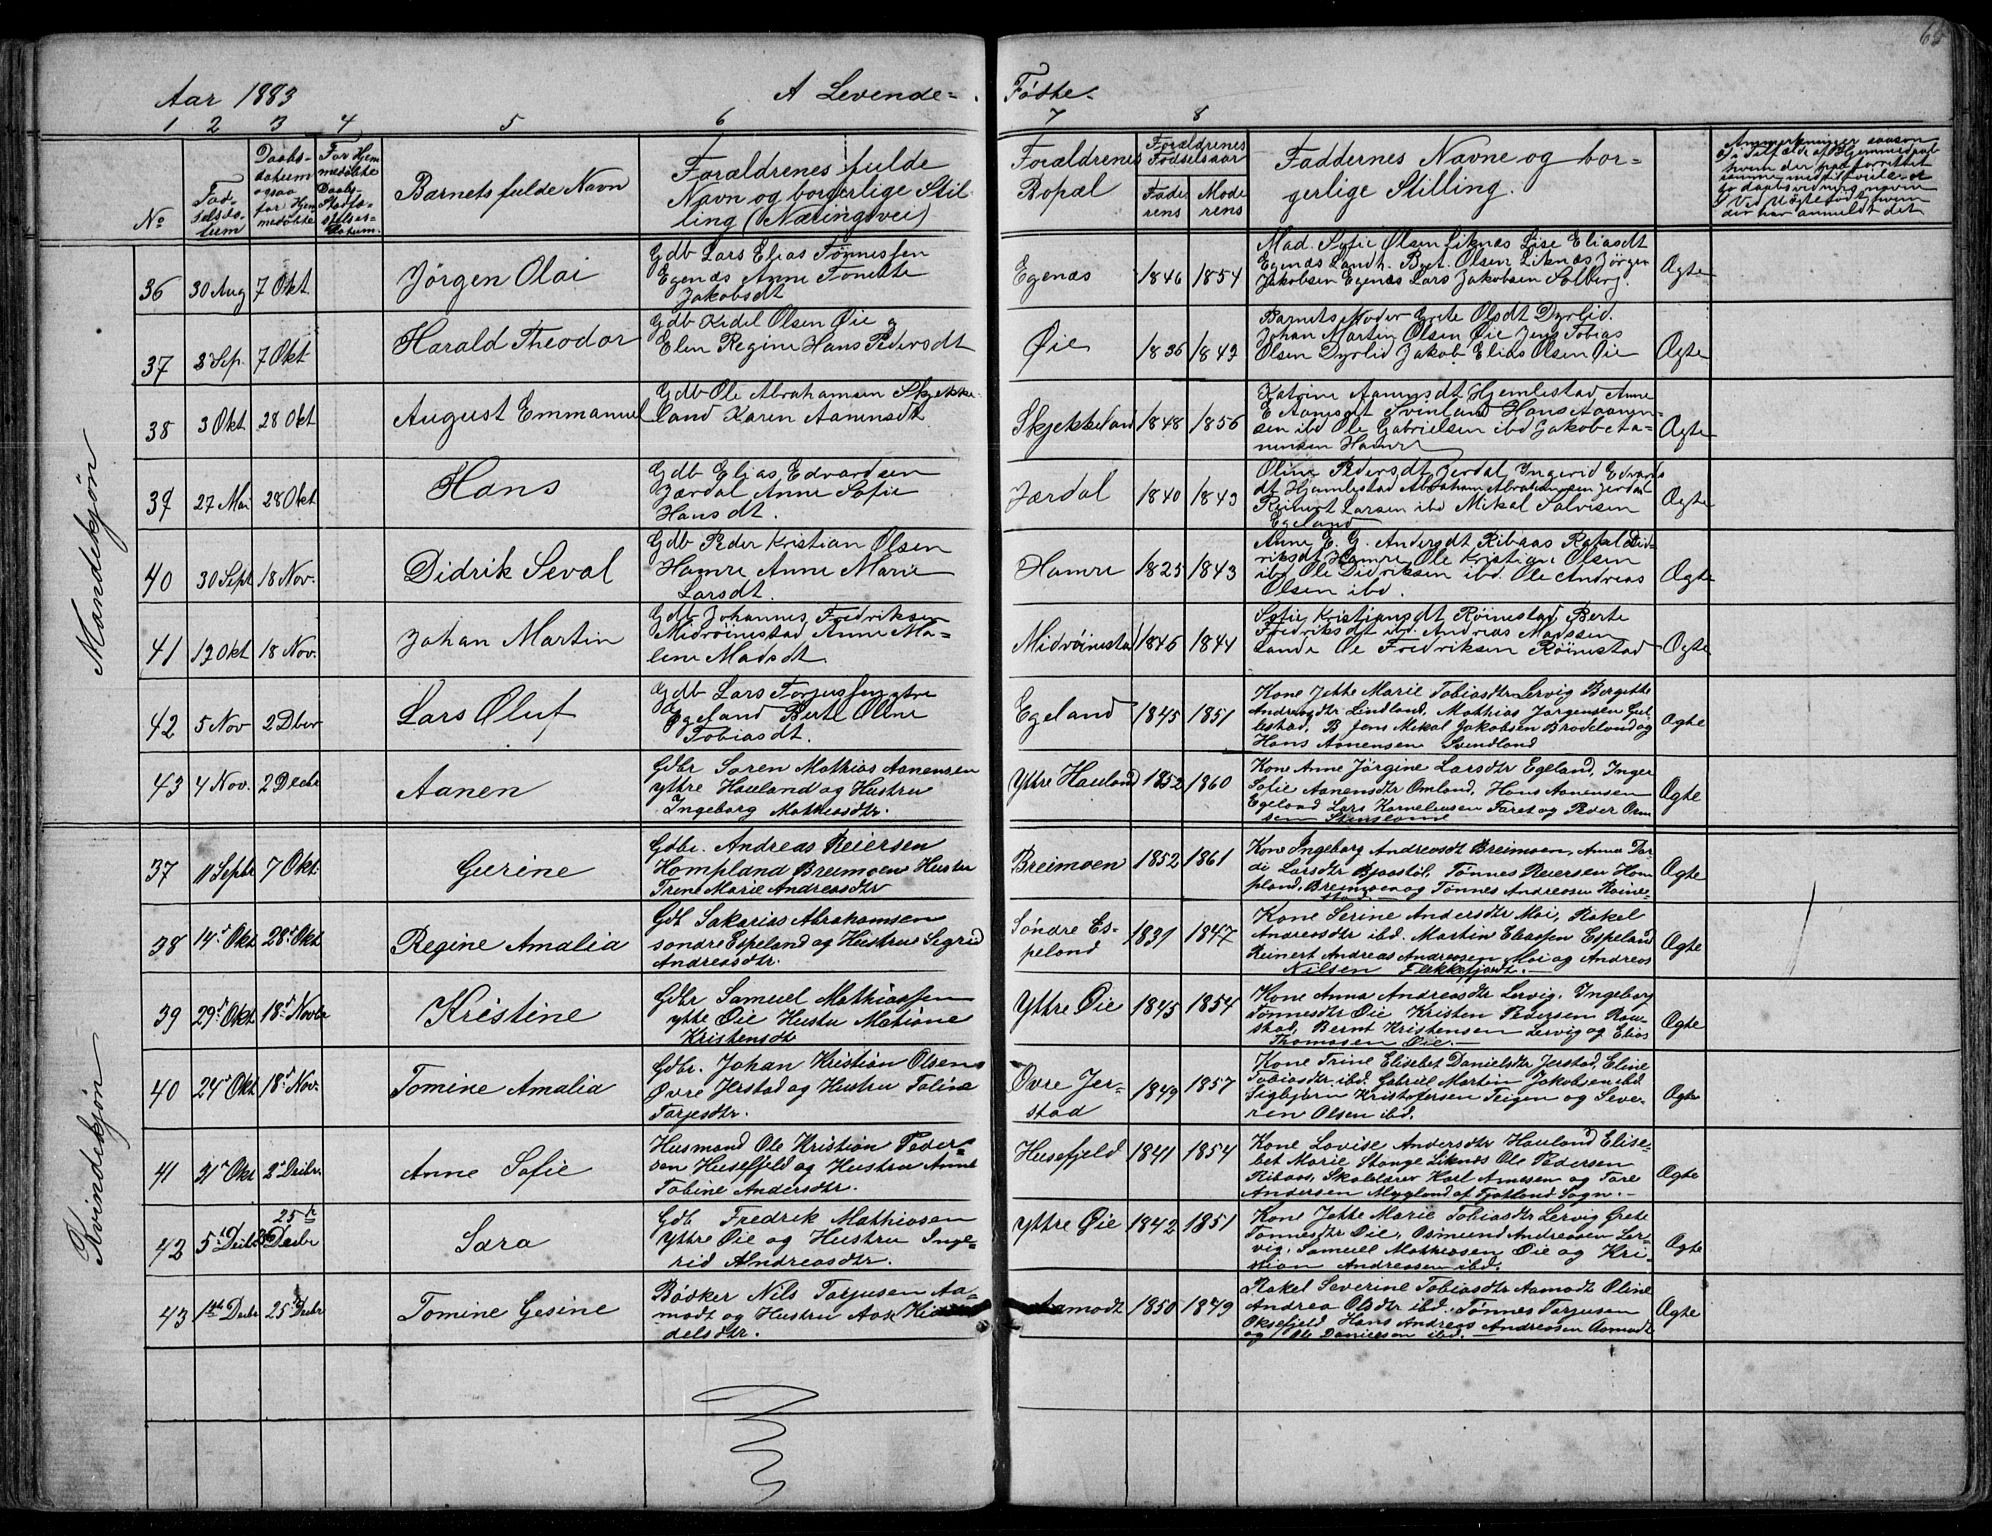 65
Aar 1883
A Levende- Fødte.
1 2 3 4 5 6 7 8
No
Fød-
selsda-
tum
Daabs-
datum
ogsaa
for Hjem
medøbte
For Hjem
medøbte
Daabs-
Stadfæ-
stelses-
datum.
Barnets fulde Navn
Forældrenes fulde
Navn og borgerlige Stil
ling (Næringsvei)
Forældrenes
Bopæl
Forældrenes
Fødselsaar
Fade
rens
Mode
rens
Faddernes Navne og bor-
gerlige Stilling.
Mandekjøn
36 30 Aug 7 Okt. Jörgen Olai
Gdb Lars Elias Tønnessen
Egenæs Anne Tonette
Jakobsdt
Egenæs 1846 1854
Mad. Sofie Olsen Liknæs Lise Eliasdt
Egenæs Landh. Bert. Olsen Liknæs Jørgen
Jakobsen Egenæs Lars Jakobsen Solberg.
Ægte
37 2 Sep. 7 Okt Harald Theodor
Gdb Kidel Olsen Øie og
Elen Regine Hans Pedersdt
Øie 1836 1842
Barnets Moder Grete Olsdt Dyrlid.
Johan Martin Olsen Øie Jens Tobias
Olsen Dyrlid Jakob Elias Olsen Øie
Ægte
38 3 Okt 28 Okt August Emmanuel
Gdb Ole Abrahamsen Skjekke-
land Karen Aanensdt
Skjekkeland 1848 1856
Katrine Aanensdt Hjemlestad Anne
E Aanesdt Svinland Hans Aanen-
sen ibd Ole Gabrielsen ibd Jakob Aa-
nensen Hamre
Ægte
39 27 Mai 28 Okt Hans
Gdb Elias Edvardsen
Jærdal Anne Sofie
Hansdt.
Jærdal 1840 1843
Oline Pedersdt Jerdal Ingerid Edvards
dt Hjemlestad Abraham Abrahamsen Jerdal
Reinert Larsen ibd Mikal Salvesen
Egeland
Ægte
40 30 Sept 18 Nov. Didrik Seval
Gdb Peder Kristian Olsen
Hamre Anne Marie
Larsdt.
Hamre 1825 1843
Anne E. G. Andersdt Ribaas Rakel Did-
riksdt Hamre Ole Kristian Olsen
ibd Ole Didriksen ibd. Ole Andreas
Olsen ibd.
Ægte
41 12 Okt 18 Nov. Johan Martin
Gdb Johannes Fredriksen
Midrøinestad Anne Ma-
lene Madsdt.
Midrøinestad 1846 1844
Sofie Kristjansdt Røinestad Berte
Fredriksdt ibd. Andreas Madssen
Lande Ole Fredriksen Røinestad
Ægte
42 5 Nov 2 Dber Lars Oluf
Gdb Lars Torjussen ytre
Egeland Berte Oline
Tobiasdt.
Egeland 1845 1851
Kone Jette Marie Tobiasdtr Lervig Bergitte
Andreasdtr Lindland, Mathias Jørgensen
B. Jens Mikal Jakobsen Brodeland og
Hans Aanensen Svindland
Ægte
43 4 Nov. 2 Decbr Aanen
Gdbr Søren Mathias Aanensen
Yttre Hauland og Hustru
Ingeborg Mathiasdtr.
Yttre Hauland 1852 1860
Kone Anne Jörgine Larsdtr Egeland, Inger
Sofie Aanensdtr Omland, Hans Aanensen
Egeland Lars Korneliusen Faret og Peder Orm
sen Stensland
Ægte
Kvindekjøn
37 11 Septbr 7 Okt. Gurine
Gdbr. Andreas Reiersen
Hompland Breimoen Hustru
Trine Marie Andreasdtr
Breimoen 1852 1861
Kone Ingeborg Andreasdt Breimoen, Anna Tor-
di Larsdtr Bjaastøl, Tönnes Reiersen Hom
pland, Breimoen og Tönnes Andreasen Roine-
stad.
Ægte
38 14de Okt 28de Okt Regine Amalia
Gdb Sakarias Abrahamsen
søndre Espeland og Hustru Sigrid
Andreasdtr.
Søndre Es-
peland 1831 1847
Kone Serine Andersdtr Moi, Rakel
Andreasdtr ibd. Martin Eliassen Espeland
Reinert Andreas Andreasen Moi og Andreas
Nilsen Flekkefjord.
Ægte
39 29de Okt 18de Novbr Kristine
Gdbr Samuel Mathiassen
ytte Øie Hustru Matiane
Kristensdtr
Yttre Øie 1845 1854
Kone Anna Andreasdtr Lervig, Ingeborg
Tønnesdtr Øie Kristen Pedersen Rau-
stad, Bernt Kristensen Lervig og Elias
Thomasen Øie.
Ægte
40 24de Okt 18de Nov. Tomine Amalia
Gdbr. Johan Kristian Olsen
Øvre Jerstad og Hustru Toline
Torjesdtr.
Øvre Jer-
stad 1849 1857
Kone Trine Elisebet Danielsdtr Jerstad, Eline
Tobiasdtr. ibd. Gabriel Martin Jakobsen ibd
Sigbjørn Kristofersen Teigen og Seve-
ren Olsen ibd.
Ægte
41 31de Okt 2de Decbr. Anne Sofie
Husmand Ole Kristian Peder-
sen Husefjeld og Hustru Anne
Tobine Andersdtr.
Husefjeld 1841 1854
Kone Lovise Andersdtr Hauland, Elise-
bet Marie Stange Liknæs Ole Pedersen
Ribaas, Skolelærer Karl Arnesen og Tore
Andersen Mygland af Fjotland Sogn.
Ægte
42 5te Decbr 25de
Decbr Sara
Gdb Fredrik Mathiasen
Yttre Øie og Hustru Inge-
rid Andreasdtr.
Yttre Øie 1842 1851
Kone Jette Marie Tobiasdtr Lervig Grete
Tønnesdtr Øie, Osmund Andreasen Ler-
vig, Samuel Mathiasen Øie og Kri-
stian Andreasen ibd.
Ægte
43 1ste Decbr 25de Decbr Tomine Gesine
Bødker Nils Torjusen Aa-
modt og Hustru Aase
delsdtr.
Aamodt 1850 1849
Rakel Severine Tobiasdtr Aamodt Oline
Andrea Olsdtr ibd. Tønnes Torjusen
Oksefjeld Hans Andreas Andreasen Aamodt
og Ole Danielsen ibd.
Ægte